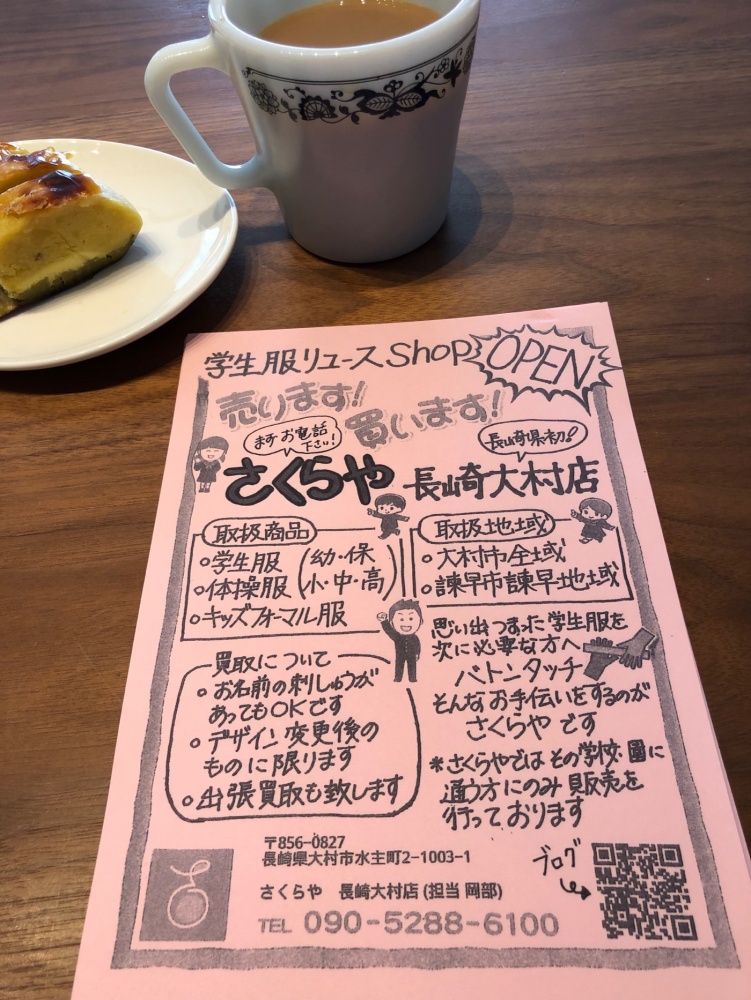 学生服リユースShop
OPEN
売ります!
買います!
まずお電話
下さい!
長崎県初!
さくらや 長崎大村店
取扱商品
○学生服
○体操服
(幼・保
小・中・高)
○キッズフォーマル服
取扱地域
○大村市全域
○諫早市諫早地域
買取について
○お名前の刺しゅうが
あってもOKです
○デザイン変更後の
ものに限ります
○出張買取も致します
思い出つまった学生服を
次に必要な方へ
バトンタッチ
そんなお手伝いをするのが
さくらやです
*さくらやではその学校・園に
通う方にのみ販売を
行っております
〒856-0827
長崎県大村市水主町2-1003-1
さくらや 長崎大村店(担当 岡部)
TEL 090-5288-6100
ブログ